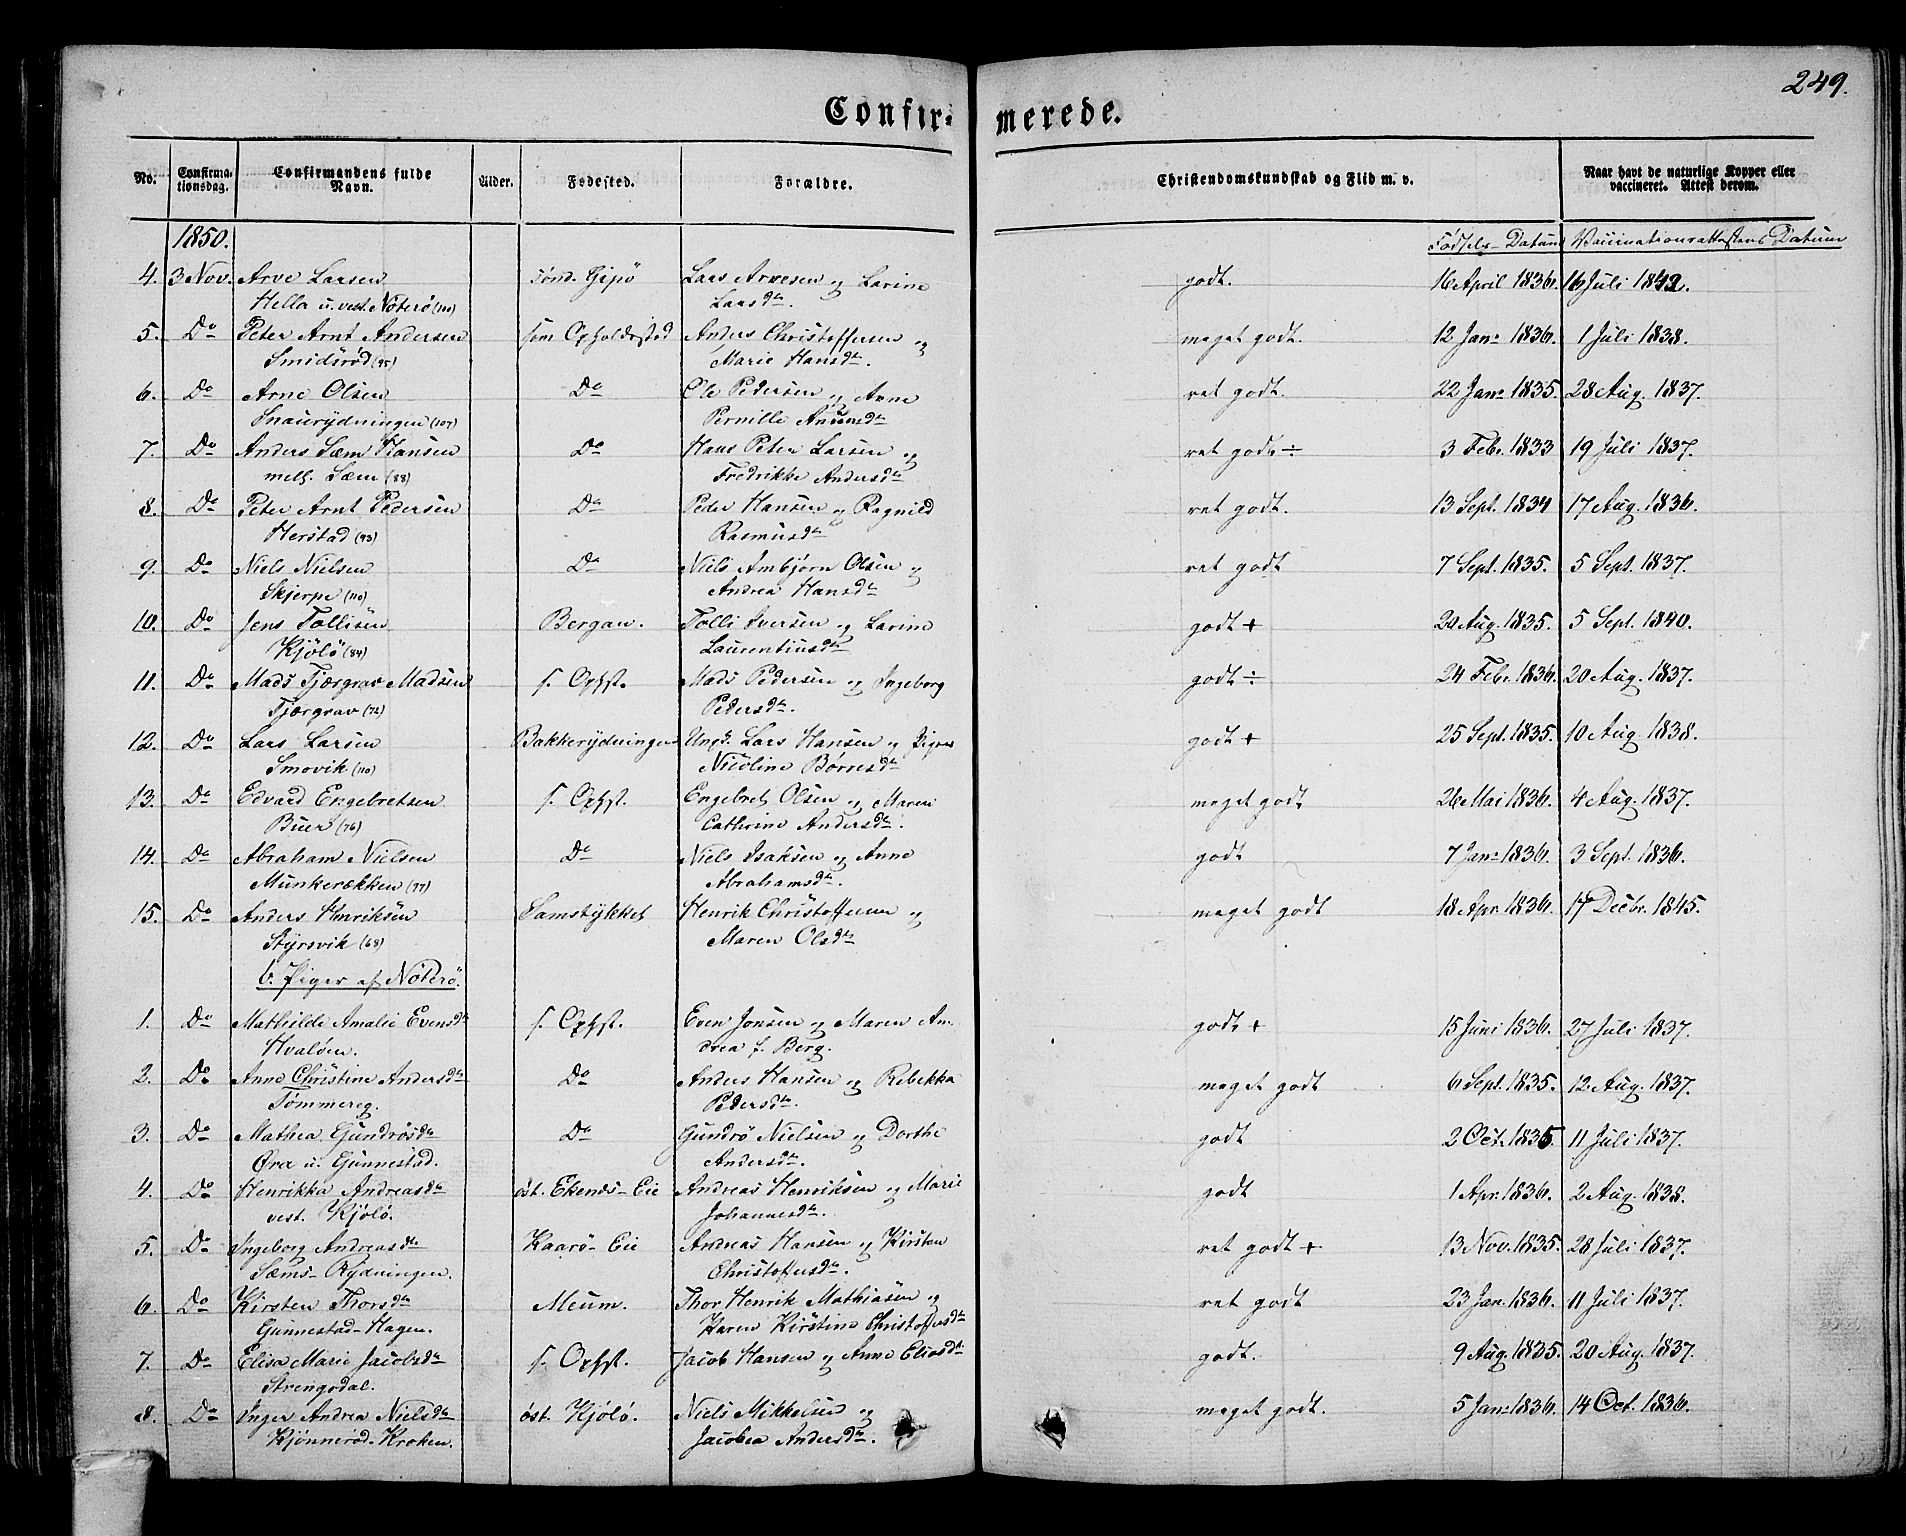 249.
Confir- merede.
No. Confirma- tionsdag. Confirmandens fulde Navn. Alder. Fødested. Forældre. Christendomskundskab og Flid m. v. Naar havt de naturlige Kopper eller vaccineret. Attest derom.
1850. Fødsels-Datum Vaccinationsattestens Datum
4. 3 Nov. Arve Larsen Tønd. Gipö Lars Arvesen og Larine godt. 16 April 1836. 16 Juli 1842.
Hella u. vest. Nøterö (110) Larsdtr.
5. Do Peter Arnt Andersen som Opholdssted Anders Christoffersen og meget godt. 12 Janr 1836. 1 Juli 1838.
Smidsrød (95) Marie Hansdtr.
6. Do Arne Olsen Do Ole Pedersen og Anne ret godt. 22 Janr 1835. 28 Aug. 1837.
Snaurydningen (107) Pernille Amundsdtr
7. Do Anders Sæm Hansen Do Hans Peter Larsen og ret godt ÷ 3 Feb. 1833 19 Juli 1837.
mell. Sæm (88) Fredrikke Andersdtr
8. Do Peter Arnt Pedersen Do Peder Hansen og Ragnild ret godt. 13 Sept. 1834 17 Aug. 1836.
Herstad (93) Rasmusdtr
9. Do Niels Nielsen Do Niels Ambjørn Olsen og ret godt 7 Sept. 1835. 5 Sept. 1837.
Skjerpe (110) Andrea Hansdtr
10. Do Jens Tollisen Bergan. Tolli Iversen og Larine godt + 20 Aug. 1835. 5 Sept. 1840.
Kjölö (84) Laurentiusdtr
11. Do Mads Tjærgrav Madsen s. Ophst. Mads Pedersen og Ingeborg godt ÷ 24 Feb. 1836. 20 Aug. 1837.
Tjærgrav (72) Pedersdtr.
12. Do Lars Larsen Bakkerydningen Ungk. Lars Hansen og Pigen godt + 25 Sept. 1835. 10 Aug. 1838.
Smovik (110) Nicoline Børresdtr
13. Do Edvard Engebretsen s. Ophst. Engebret Olsen og Maren meget godt 26 Mai 1836. 4 Aug. 1837.
Buer (76) Cathrine Andersdtr.
14. Do Abraham Nielsen Do Niels Isaksen og Anne godt 7 Janr 1836. 3 Sept. 1836.
Munkerækken (77) Abrahamsdtr.
15. Do Anders Henriksen Samstykket Henrik Christoffersen og meget godt 18 Apr. 1836. 17 Decbr. 1845.
Styrsvik (68) Maren Olsdtr
b. Piger af Nøterö.
1. Do Mathilde Amalie Evensdtr s. Ophst. Even Jonsen og Maren An- godt + 15 Juni 1836. 27 Juli 1837.
Hvalöen. drea f. Berg.
2. Do Anne Christine Andersdtr Do Anders Hansen og Rebekka meget godt 6 Sept. 1835. 12 Aug. 1837.
Tømmereg. Pedersdtr.
3. Do Mathea Gundrosdtr Do Gundrö Nielsen og Dorthe godt 2 Oct. 1835. 11 Juli 1837.
Øra u. Gunnestad. Andersdtr.
4. Do Henrikka Andreasdtr öst. Ekenes-Eie Andreas Henriksen og Marie godt 1 Apr. 1836. 2 Aug. 1838.
vest. Kjölö. Johannesdtr.
5. Do Ingeborg Andreasdtr Kaarö-Eie Andreas Hansen og Kirsten ret godt + 13 Nov. 1835. 28 Juli 1837.
Sæms-Rydningen. Christoffersdtr.
6. Do Kirsten Thorsdtr Meum. Thor Henrik Mathiasen og ret godt 23 Jan. 1836. 11 Juli 1837.
Gunnestad-Hagen. Karen Kirstine Christoffersdtr
7. Do Elisa Marie Jacobsdtr s. Ophst. Jacob Hansen og Anne Eliasdtr godt. 9 Aug. 1835. 20 Aug. 1837.
Strengsdal.
8. Do Inger Andrea Nielsdtr öst. Kjölö. Niels Mikkelsen og meget godt. 5 Janr 1836. 14 Oct. 1836.
Kjønnerød-Kroken. Jacobea Andersdtr.